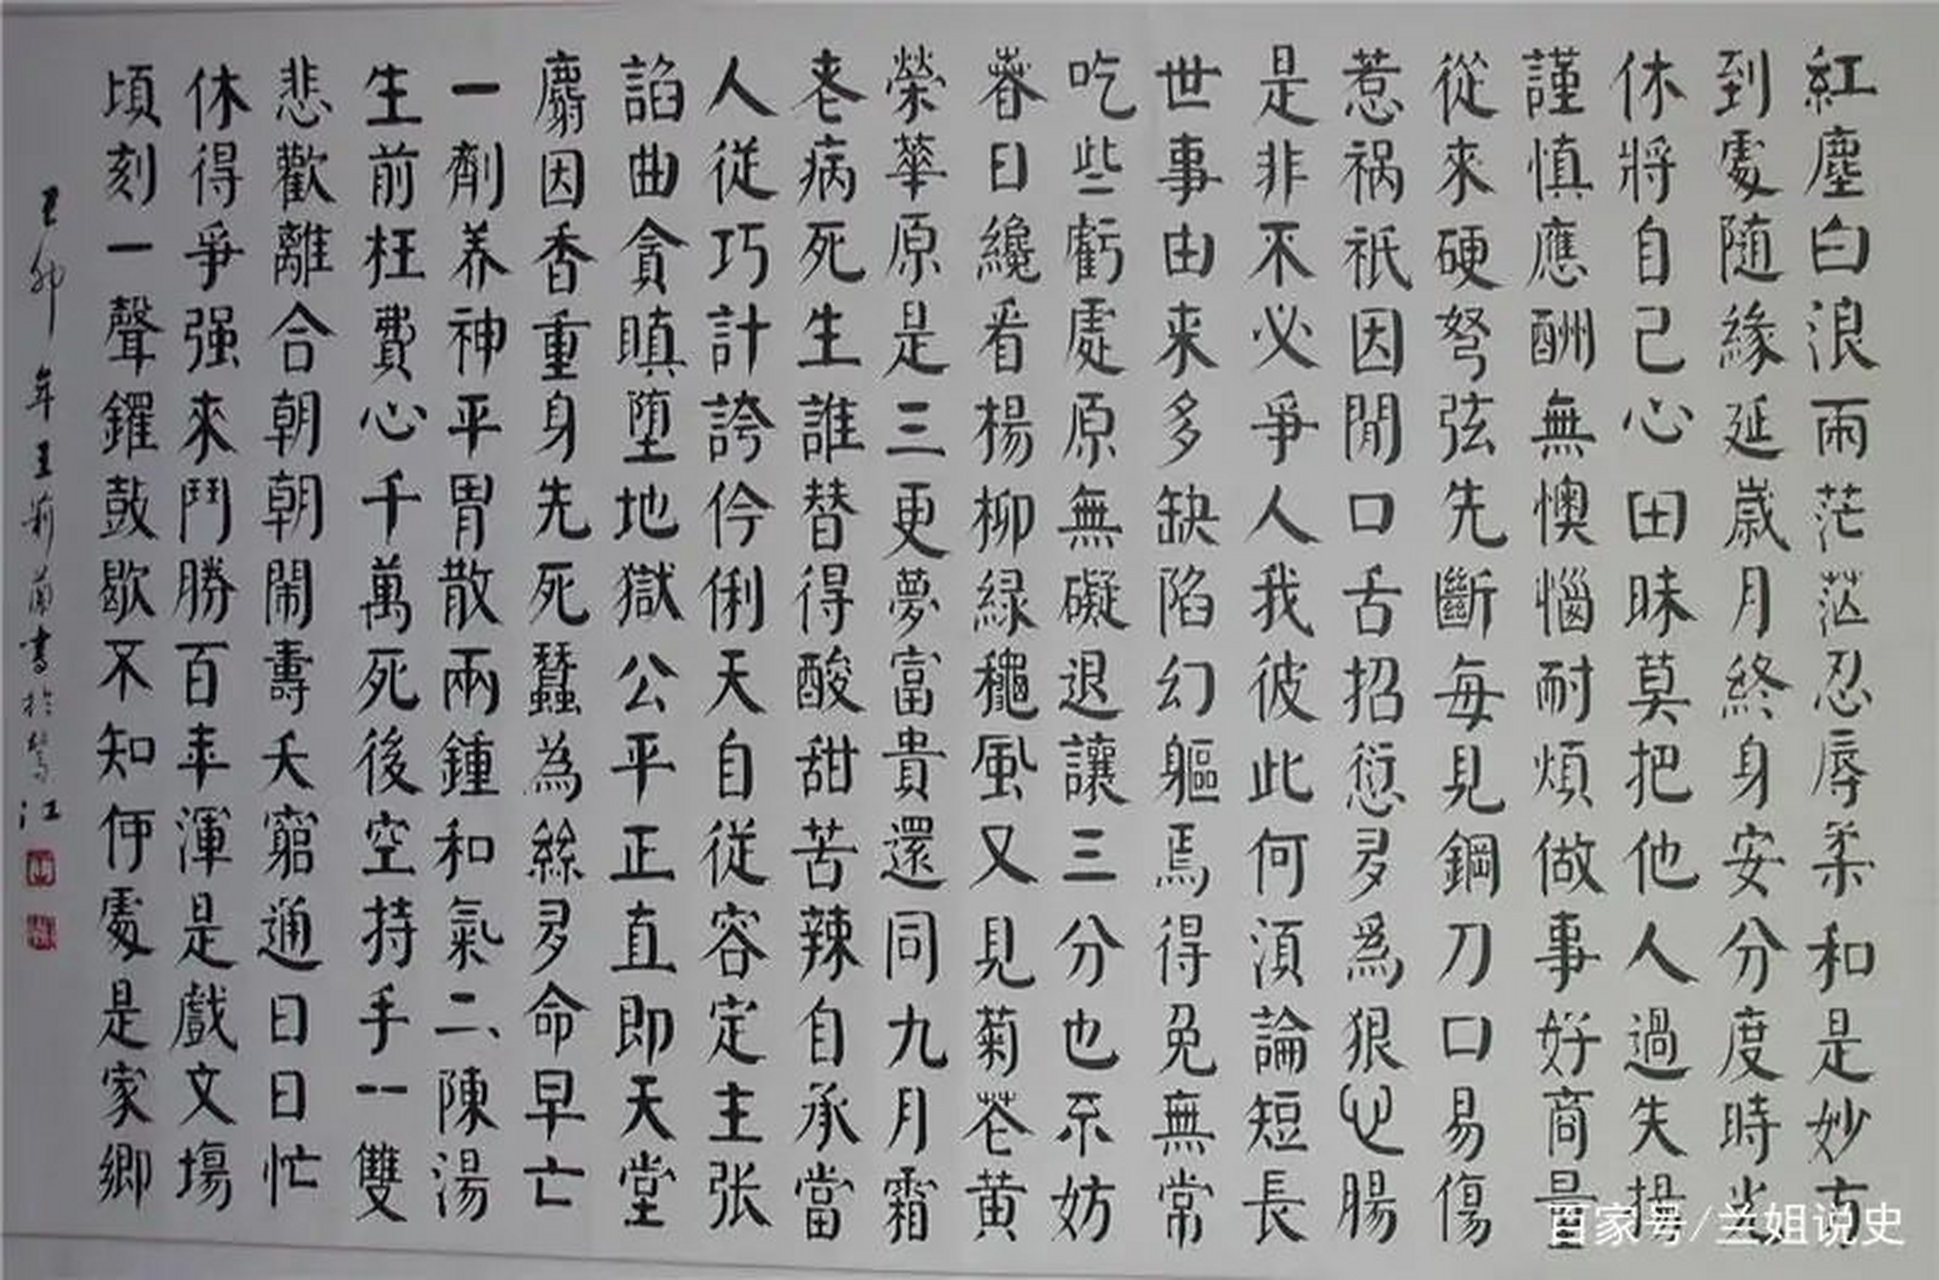 紅塵白浪兩茫茫忍辱柔和是妙方
到處隨緣延歲月終身安分度時光
休將自己心田昧莫把他人過失揚
謹慎應酬無懊惱耐煩做事好商量
從來硬弩弦先斷每見鋼刀口易傷
惹祸祇因閒口舌招愆多爲狠心腸
是非不必爭人我彼此何須論短長
世事由来多缺陷幻軀焉得免無常
吃些虧處原無礙退讓三分也不妨
春日纔看楊柳緑穐風又見菊花黄
榮華原是三更夢富貴還同九月霜
老病死生誰替得酸甜苦辣自承當
人從巧計誇伶俐天自從容定主张
諂曲貪瞋堕地獄公平正直即天堂
麝因香重身先死蠶為絲多命早亡
一劑养神平胃散兩鍾和氣二陳湯
生前枉費心千萬死後空持手一雙
悲歡離合朝朝鬧壽夭窮通日日忙
休得爭强來鬥勝百年渾是戲文場
頃刻一聲鑼鼓歇不知何處是家鄉
卯年王莉蘭書於江
百家号/兰姐说史